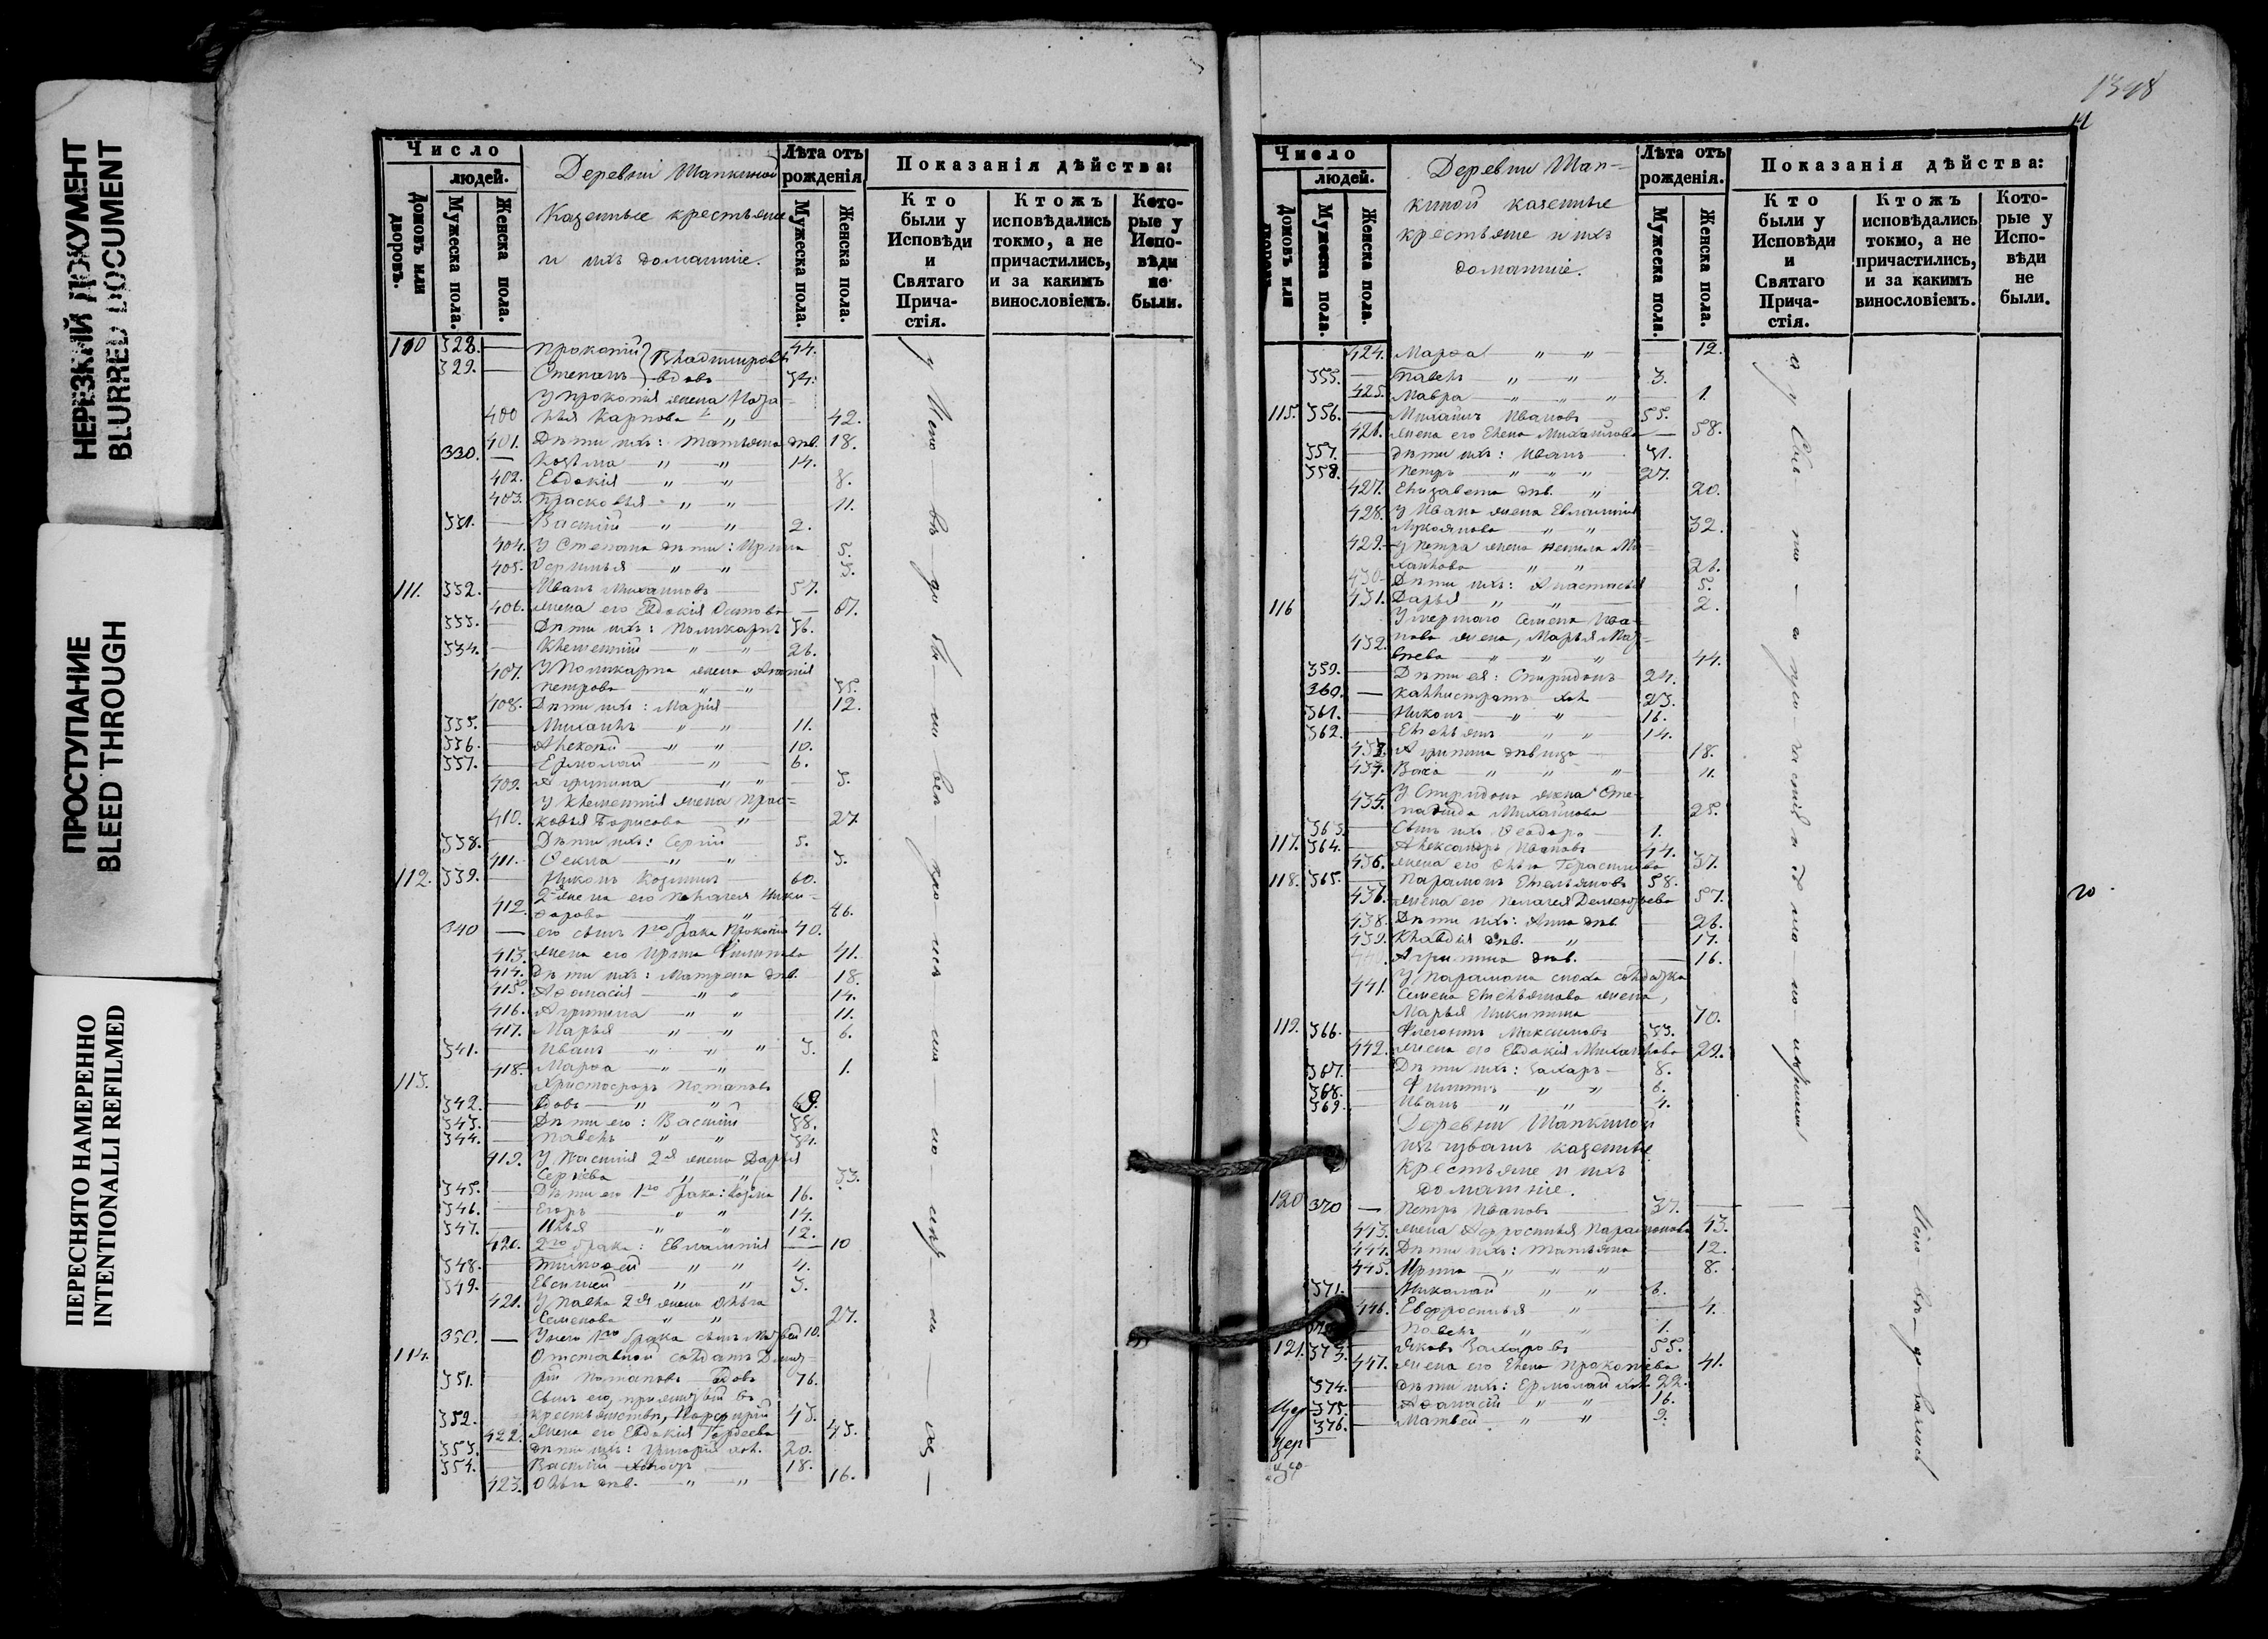 НЕРЕЗКИЙ ДОКУМЕНТ
BLURRED DOCUMENT
ПРОСТУПАНИЕ
BLEED THROUGH
ПЕРЕСНЯТО НАМЕРЕННО
INTENTIONALLI REFILMED
Число
людей.
Домовъ или дворовъ.
Мужеска пола.
Женска пола.
Деревни Шапкиной
Казенные крестьяне
и ихъ домашніе.
Лѣта отъ рожденія
Мужеска пола.
Женска пола.
Показанія дѣйства:
Кто были у Исповѣди и Святаго Прича-стія.
Ктожъ исповѣдались токмо, а не причастились, и за какимъ винословіемъ.
Кото-рые у Испо-вѣди не были.
110 328. — Прокопій Владимировъ 44.
329. — Степанъ вдовъ 34.
У Прокопія жена
400 Карпова 42.
401. Дѣти ихъ: Татьяна дѣв. 18.
330. — Козьма 14.
402. Евдокія 8.
403. Прасковья 11.
331. — Василій 2.
404. У Степана дѣти: Ирина 5.
405. 3.
111. 332. — Иванъ Михаиловъ 57.
406. жена его Евдокія Осипова — 61.
333. — Дѣти ихъ: Поликарпъ 36.
334. — Климентій 26.
407. У Поликарпа жена
Петрова 35.
408. Дѣти ихъ: Марія 12.
335. — Михаилъ 11.
336. — Алексѣй 10.
337. — Ермолай 6.
409. Агрипина 3.
У Климентія жена Прас=
410. ковья Борисова 27.
338. — Дѣти ихъ: Сергій 5.
411. Ѳекла 3.
112. 339. — Никонъ Козминъ 60.
2я жена его Пелагея Ники=
412. форова 46.
340 — его сынъ 1го брака Прокопій 40.
413. жена его Ирина Филипова 41.
414. Дѣти ихъ: Матрена дѣв. 18.
415. Аѳанасія 14.
416. Агрипина 11.
417. Марья 6.
341. — Иванъ 3.
418. Марѳа 1.
113. Христофоръ Потаповъ
342. — вдовъ 69.
343. — Дѣти его: Василій 38.
344. — Павелъ 34.
419. У Василія 2я жена Дарья
Сергіева 33.
345. — Дѣти его 1го брака: Козма 16.
346. — Егоръ 14.
347. — Илья 12.
420. 2го брака: Евлампія — 10
348. — Тимоѳей 4.
349. — Евсигней 3.
421. У Павла 2я жена Ольга
Семенова 27.
350. — У него 1го брака сынъ Матвей 10.
114. Отставной солдатъ Дмит=
351. рій Потаповъ вдовъ 76.
Сынъ его, прижитый въ
352. крестьянствѣ, Порфирій 43.
422. Жена его Евдокія Гордеева 43.
353. — дѣти ихъ: Григорій хол. 20.
354. — Василій холостъ 18.
423. Ольга дѣв. 16.
1348
Число
людей.
Домовъ или
Мужеска пола.
Женска пола.
Деревни Шап-
киной казенные
крестьяне и ихъ
домашніе.
Лѣта отъ рожденія.
Мужеска пола.
Женска пола.
Показанія дѣйства:
Кто были у Исповѣди и Святаго Прича-стія.
Ктожъ исповѣдались токмо, а не причастились, и за какимъ винословіемъ.
Кото-рые у Испо-вѣди не были.
424. Марѳа 12.
355. — Павелъ 3.
425. Мавра 1.
115. 356. — Михаилъ Ивановъ 55.
426. жена его Елена Михайлова — 58.
357. — дѣти ихъ: Иванъ 31.
358. — Петръ 27.
427. Елизавета дѣв. 20.
428. У Ивана жена Евлампія
Лукоянова 32.
429. У Петра жена Ненила Ми=
хайлова 26.
430. Дѣти ихъ: Анастасья 5.
431. Дарья 2.
116 Умершаго Семена Ива=
432. нова жена, Марья Мат=
вѣева 44.
359. — Дѣти ея: Спиридонъ 24.
360. — Каллистратъ хол. 23.
361. — Никонъ 16.
362. — Емельянъ 14.
433. Агрипина дѣвица 18.
434. Васса 11.
435. У Спиридона жена Сте=
панида Михайлова 25.
363. — Сынъ ихъ Ѳеодоръ 1.
117. 364. — Александръ Ивановъ 44.
436. жена его Ольга Герасимова 37.
118. 365. — Парамонъ Емельяновъ 58.
436. жена его Пелагея Дементьева 57.
438. Дѣти ихъ: Анна дѣв. 26.
439. Клавдія дѣв. 17.
Агрипина дѣв. — 16.
441. У Парамона сноха солдатка
Семена Емельянова жена,
Марья Никитина 70.
119. 366. — Флегонтъ Максимовъ 33.
442. жена его Евдокія Михаилова 29.
367. — Дѣти ихъ: Захаръ 8.
368. — Филипъ 6.
369. — Иванъ 4.
Деревни Шапкиной
изъ чувашъ казенные
крестьяне и ихъ
домашніе.
120 370 — Петръ Ивановъ 37.
443. жена Афросинья Парамонова 43.
444. Дѣти ихъ: Татьяна 12.
445. Ирина 8.
371. — Николай 6.
446. Евфросинья — 4.
— Павелъ 1.
121. 373. — Яковъ Захаровъ 55.
447. жена его Елена Прокопіева 41.
374. — дѣти ихъ: Ермолай хол. 22.
375. — Аѳанасій 16.
376. — Матвей 9.